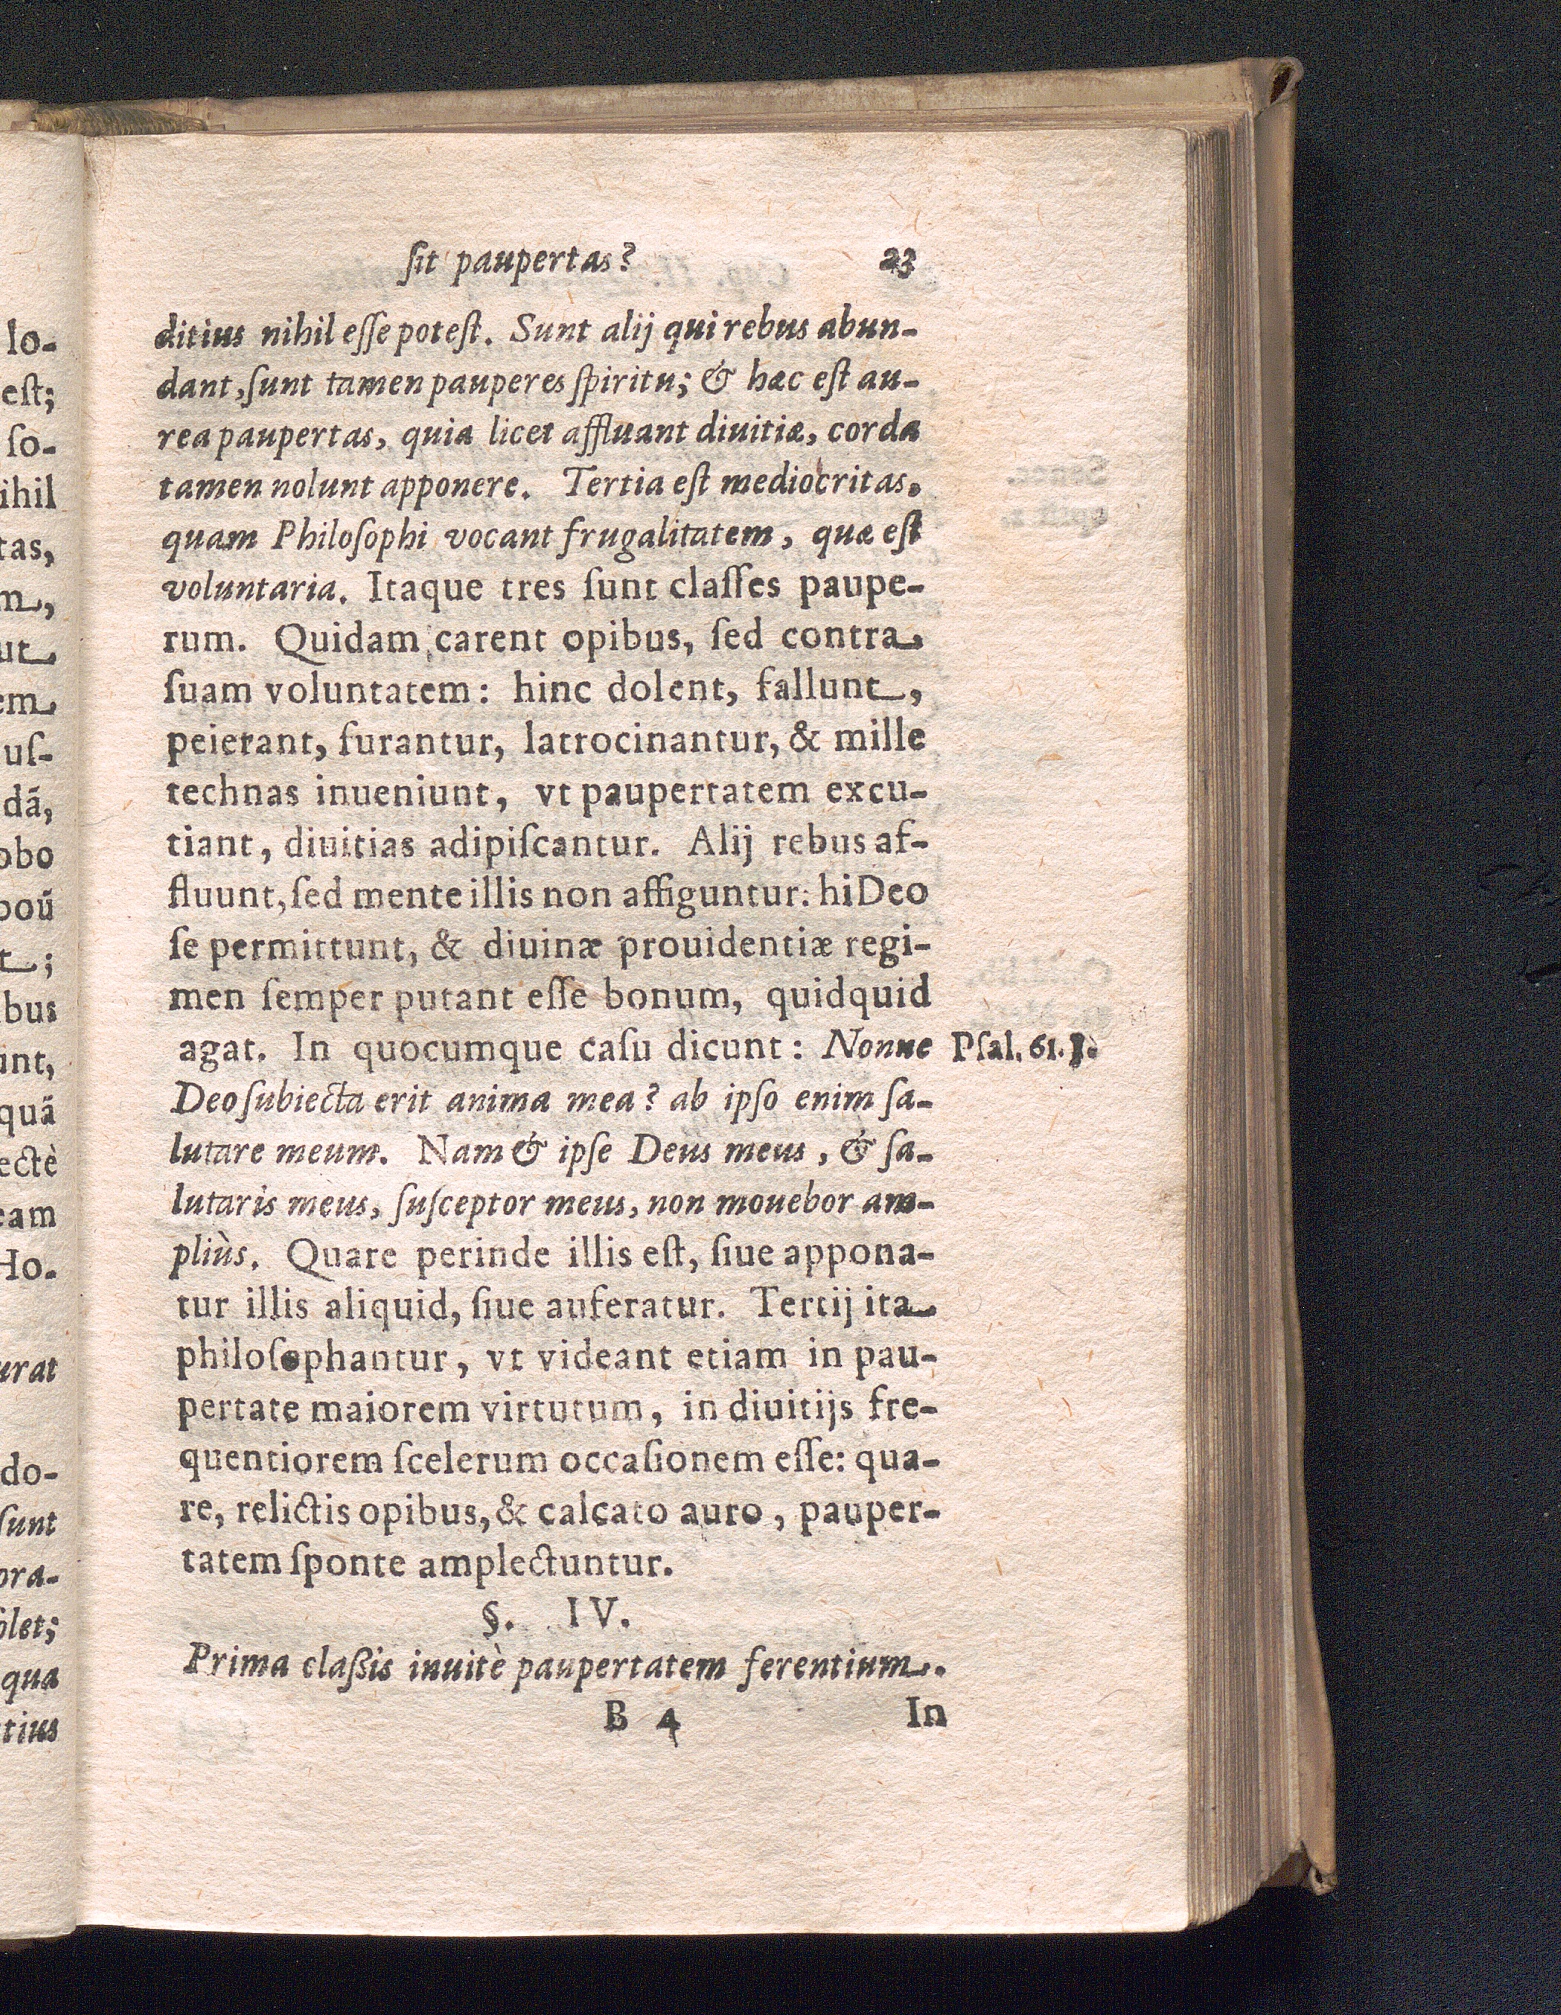 ſit paupertas? 23
ditius nihil eſſe poteſt. Sunt alij qui rebus abun-
dant, ſunt tamen pauperes ſpiritu; & hæc eſt au-
rea paupertas, quia licet affluant diuitiæ, corda
tamen nolunt apponere. Tertia eſt mediocritas,
quam Philoſophi vocant frugalitatem, quæ eſt
voluntaria. Itaque tres ſunt claſſes paupe-
rum. Quidam carent opibus, ſed contra
ſuam voluntatem: hinc dolent, fallunt,
peierant, furantur, latrocinantur, & mille
technas inueniunt, vt paupertatem excu-
tiant, diuitias adipiſcantur. Alij rebus af-
fluunt, ſed mente illis non affiguntur: hi Deo
ſe permittunt, & diuinæ prouidentiæ regi-
men ſemper putant eſſe bonum, quidquid
agat. In quocumque caſu dicunt: Nonne
Pſal. 61.
Deo ſubiecta erit anima mea? ab ipſo enim ſa-
lutare meum. Nam & ipſe Deus meus, & ſa-
lutaris meus, ſuſceptor meus, non mouebor am-
pliùs. Quare perinde illis eſt, ſiue appona-
tur illis aliquid, ſiue auferatur. Tertij ita
philoſophantur, vt videant etiam in pau-
pertate maiorem virtutum, in diuitijs fre-
quentiorem ſcelerum occaſionem eſſe: qua-
re, relictis opibus, & calcato auro, pauper-
tatem ſponte amplectuntur.
§. IV.
Prima claßis inuitè paupertatem ferentium.
B 4 In
lo-
eſt;
ſo-
ihil
tas,
m,
ut
em
uſ-
dã,
obo
t;
bus
unt,
quã
ectè
eam
Ho.
urat
do-
ſunt
ora-
olet;
qua
tius